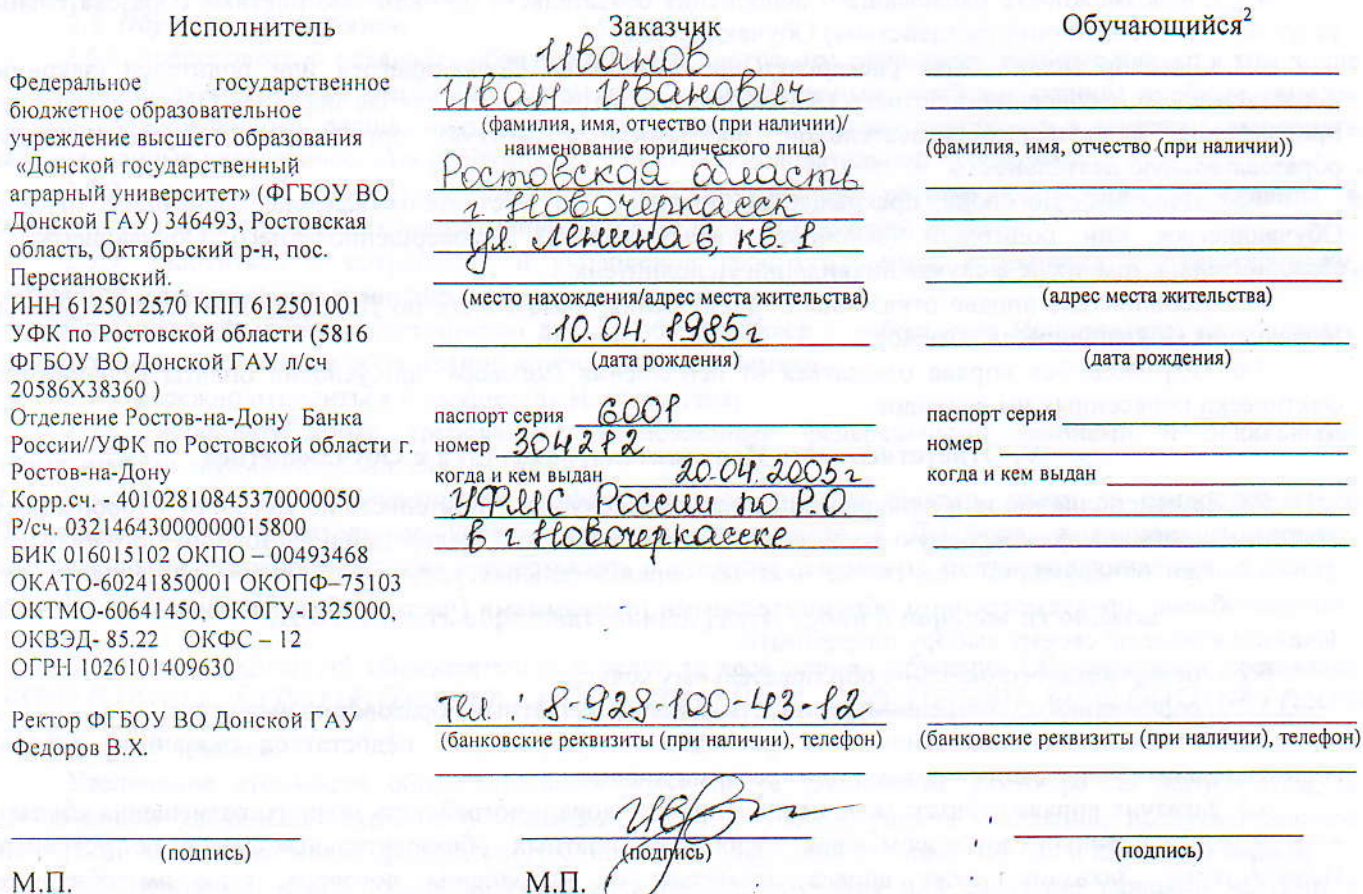 Исполнитель
Федеральное государственное
бюджетное образовательное
учреждение высшего образования
«Донской государственный
аграрный университет» (ФГБОУ ВО
Донской ГАУ) 346493, Ростовская
область, Октябрьский р-н, пос.
Персиановский
ИНН 6125012570 КПП 612501001
УФК по Ростовской области (5816
ФГБОУ ВО Донской ГАУ л/сч
20586Х38360)
Отделение Ростов-на-Дону Банка
России//УФК по Ростовской области г.
Ростов-на-Дону
Корр.сч. - 40102810845370000050
Р/сч. 03214643000000015800
БИК 016015102 ОКПО – 00493468
ОКАТО-60241850001 ОКОПФ–75103
ОКТМО-60641450, ОКОГУ-1325000,
ОКВЭД- 85.22 ОКФС – 12
ОГРН 1026101409630
Ректор ФГБОУ ВО Донской ГАУ
Федоров В.Х.
(подпись)
М.П.
Заказчик
Иванов
Иван Иванович
(фамилия, имя, отчество (при наличии)/
наименование юридического лица)
Ростовская область
г. Новочеркасск
ул. Ленина 6, кв. 1
(место нахождения/адрес места жительства)
10.04.1985г
(дата рождения)
паспорт серия 6001
номер 304212
когда и кем выдан 20.04.2005г
УФМС России по Р.О
в г Новочеркасске
Тел.: 8-928 100-43-12
(банковские реквизиты (при наличии), телефон)
(подпись)
М.П.
Обучающийся²
(фамилия, имя, отчество (при наличии))
(адрес места жительства)
(дата рождения)
паспорт серия
номер
когда и кем выдан
(банковские реквизиты (при наличии), телефон)
(подпись)